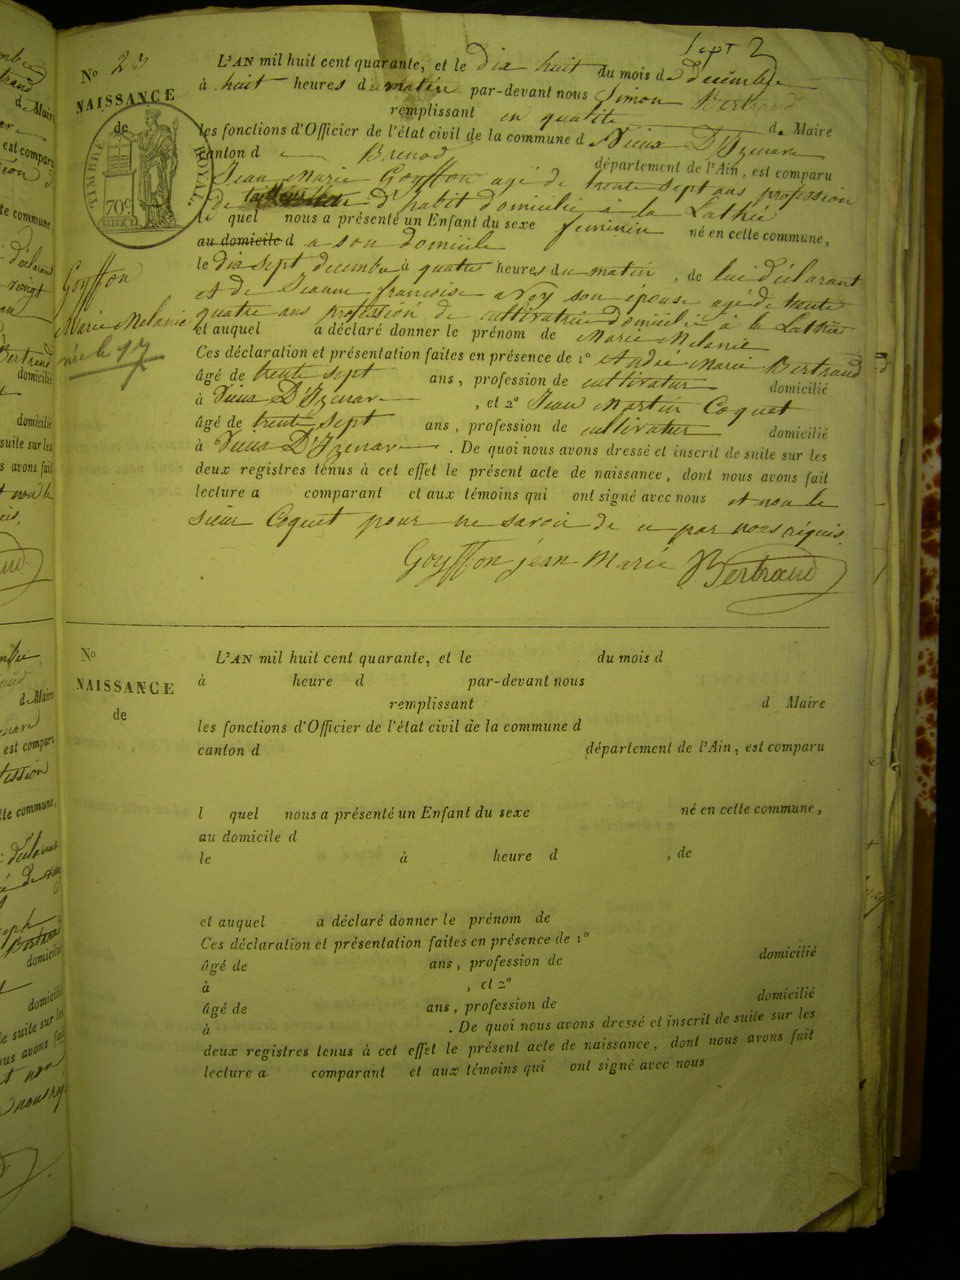 Sept 2
N° 23
NAISSANCE
de
TIMBRE ROYAL
70c
Goyffon
Marie Melanie
née le 17
L'AN mil huit cent quarante, et le dix huit du mois de Décembre
à huit heures du matin par-devant nous Simon Bertrand
remplissant en qualité de Maire
les fonctions d'Officier de l'état civil de la commune d Vieux D'Izenave
canton d Brenod département de l'Ain, est comparu
Jean Marie Goyffon agé de trente sept ans profession
de tailleur d'habit domicilié à la Lathé
le quel nous a présenté un Enfant du sexe feminin né en cette commune,
au domicile d a son domicile
le dix sept decembre à quatre heures du matin, de lui déclarant
et de Jeanne françoise avoy son épouse agé de trente
quatre ans profession de cultivatrice domicilié à la Lathé
et auquel a déclaré donner le prénom de Marie Melanie
Ces déclaration et présentation faites en présence de 1° André Marie Bertrand
âgé de trente sept ans, profession de cultivateur domicilié
à Vieux D'Izenave, et 2° Jean Martin Coquet
âgé de trente sept ans, profession de cultivateur domicilié
à Vieux D'Izenave. De quoi nous avons dressé et inscrit de suite sur les
deux registres tenus à cet effet le présent acte de naissance, dont nous avons fait
lecture a comparant et aux témoins qui ont signé avec nous et non le
sieur Coquet pour ne savoir de ce par nous réquis.
Goyffon jean Marie Bertrand
N°
NAISSANCE
de
L'AN mil huit cent quarante, et le du mois d
à heure d par-devant nous
remplissant d Maire
les fonctions d'Officier de l'état civil de la commune d
canton d département de l'Ain, est comparu
l quel nous a présenté un Enfant du sexe né en cette commune,
au domicile d
le à heure d , de
et auquel a déclaré donner le prénom de
Ces déclaration et présentation faites en présence de 1°
âgé de ans, profession de domicilié
à , et 2°
âgé de ans, profession de domicilié
à . De quoi nous avons dressé et inscrit de suite sur les
deux registres tenus à cet effet le présent acte de naissance, dont nous avons fait
lecture a comparant et aux témoins qui ont signé avec nous